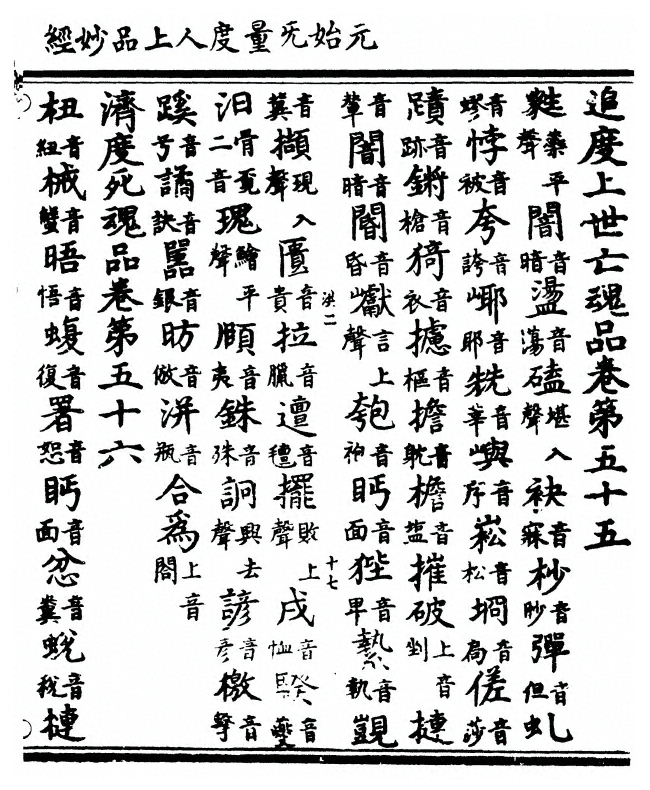 元始旡量度人上品妙經
追度上世亡魂品卷第五十五
甦蘇平聲闇音暗盪音蕩磕堪入聲袂音寐杪音眇彈音但虬
音蟉悖音被夸音誇㟎音耶音華嶼音序崧音松坰音扃傞音莎
蹟音跡鏘音槍猗音衣攄音樞擔音耽檐音盐摧破上音剉摙
音輦闇音暗閽音昏巘言上聲匏音袍眄音面狴音縶音執覬
洪二
十七
音冀擷現入聲匱音貴拉音臘邅音氊擺敗上聲戌音恤音
汩骨覓二音瑰繪平聲頤音夷銖音殊詗興去聲諺音彥檄音擊
蹊音兮譎音訣嚚音銀昉音倣洴音瓶合爲上音閤
濟度死魂品卷第五十六
杻音紐械音蟹晤音悟蝮音復署音恕眄音面忿音糞蛻音稅摙